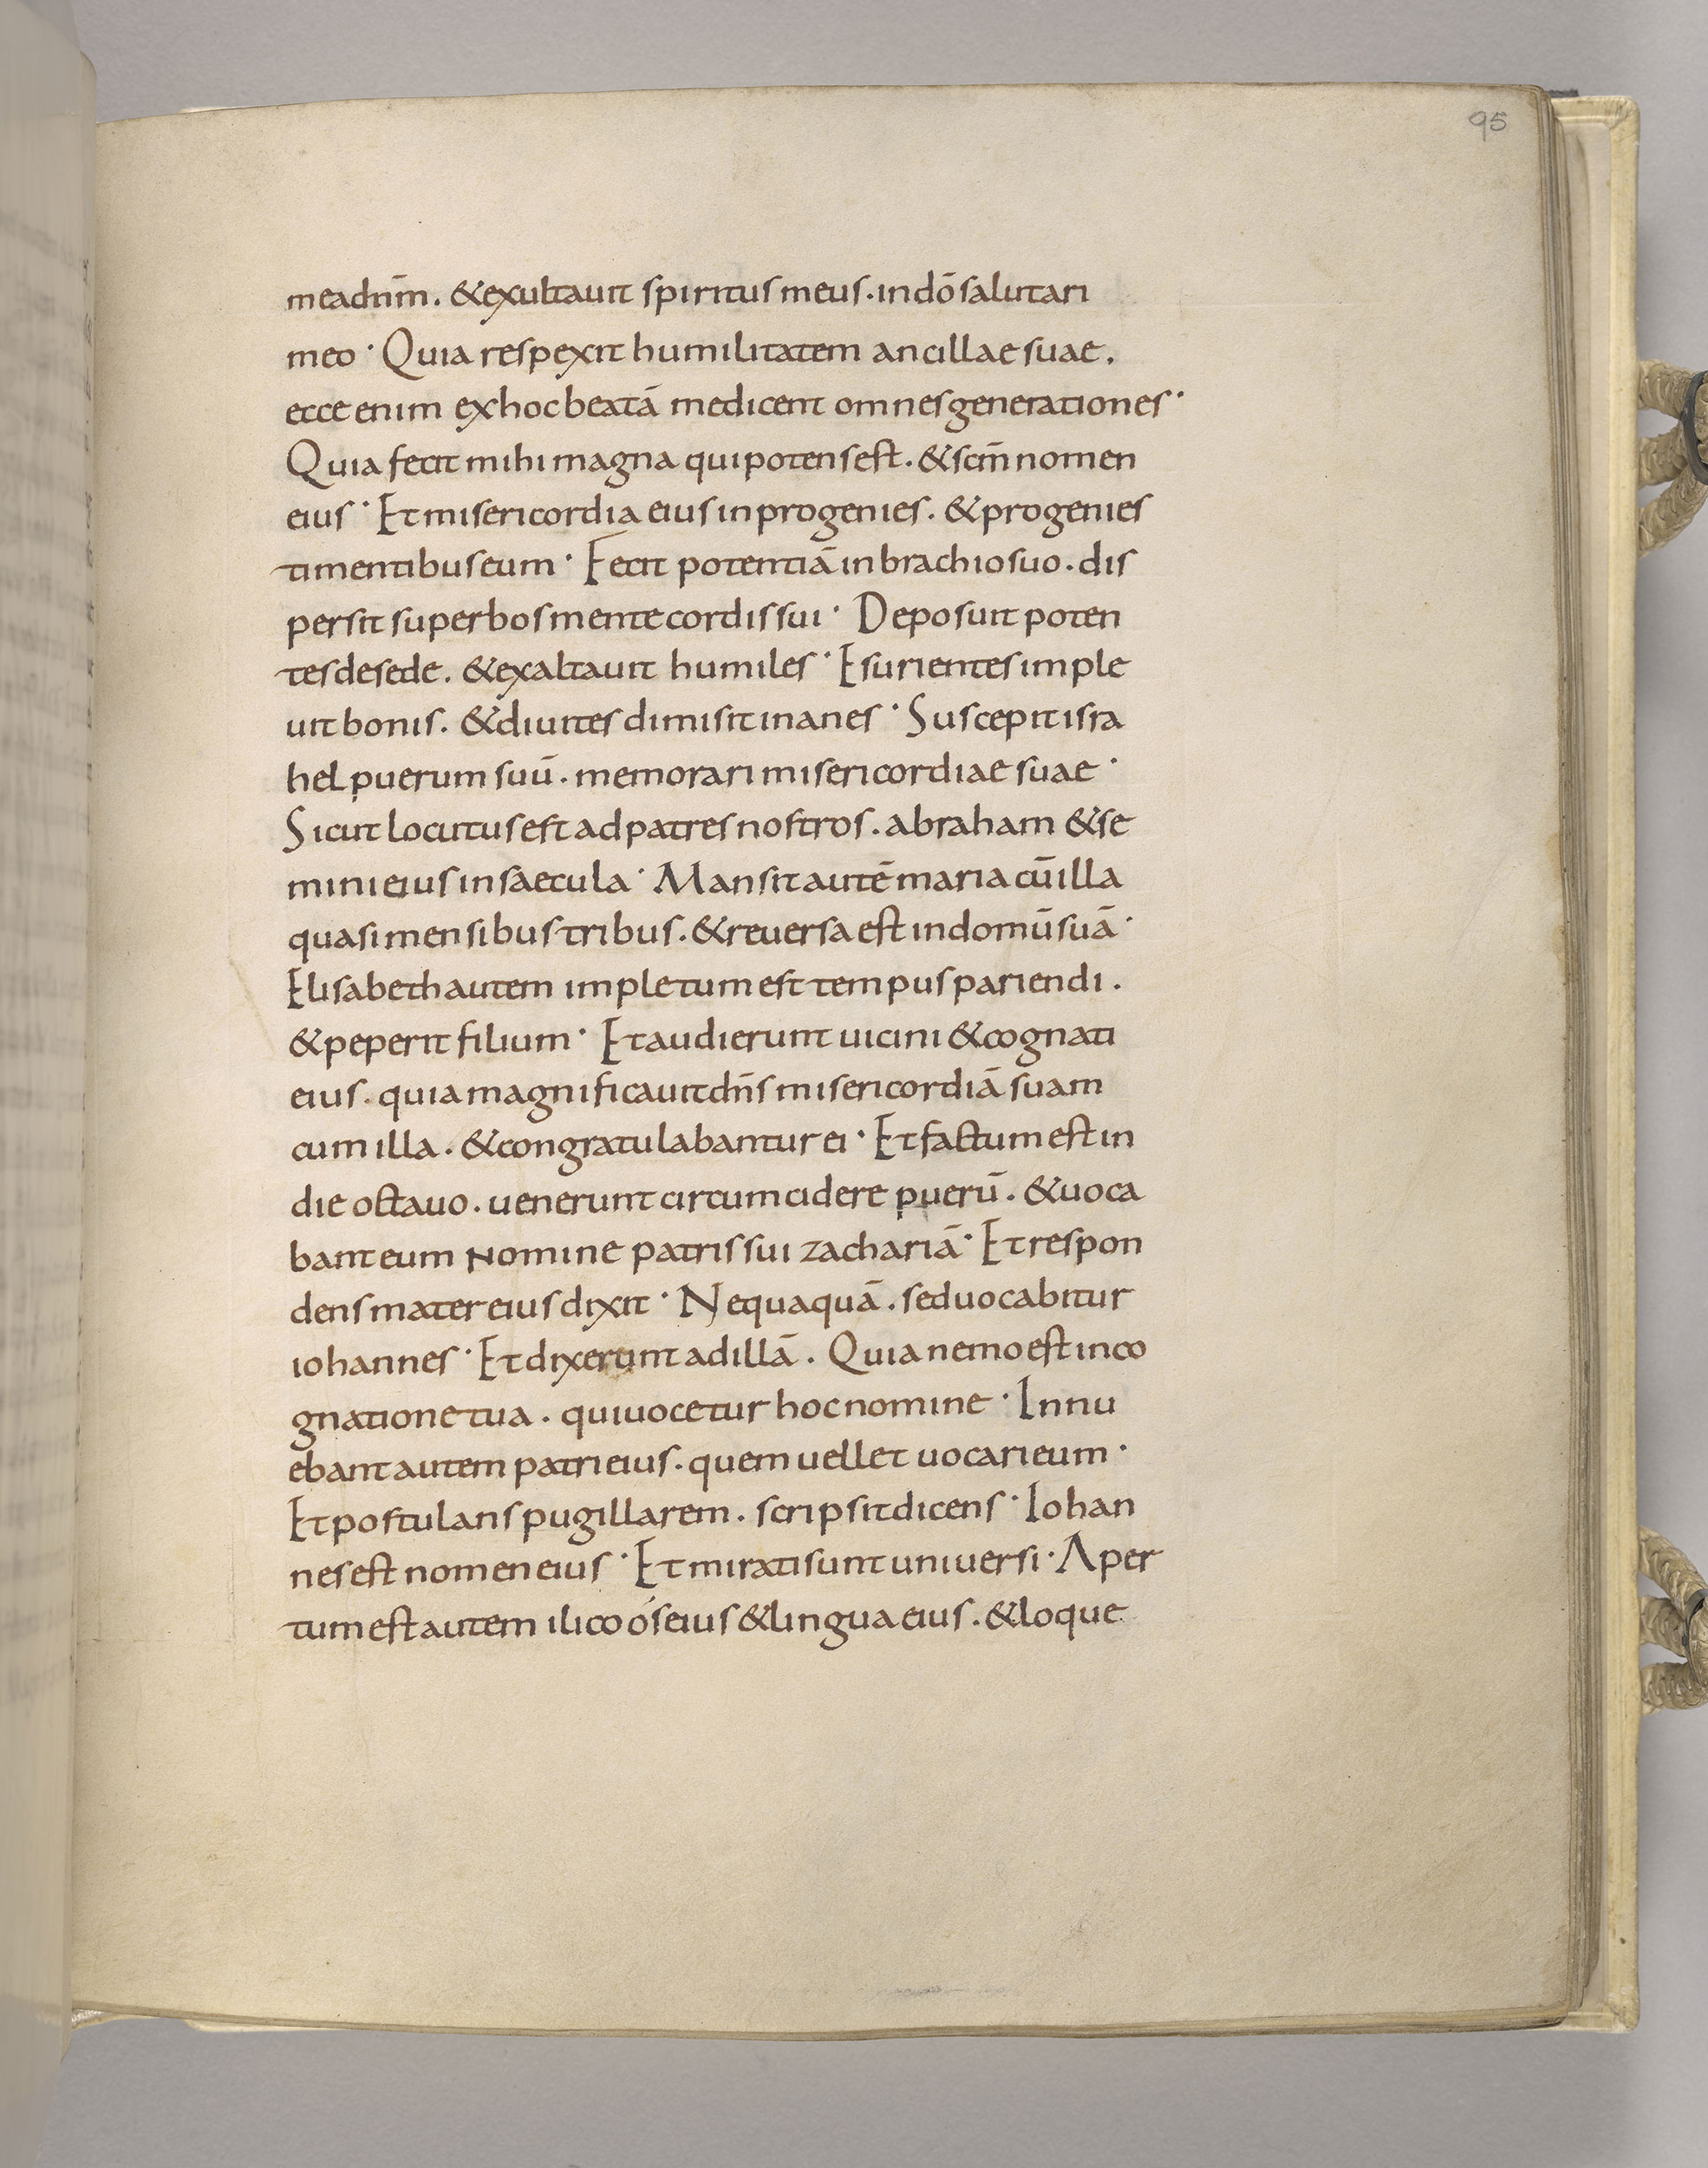 95
mea dnm̄. & exultauit spiritus meus. in dō salutari
meo· Quia respexit humilitatem ancillae suae.
ecce enim ex hoc beatā me dicent omnes generationes·
Quia fecit mihi magna qui potens est. & scm̄ nomen
eius· Et misericordia eius in progenies. & progenies
timentibus eum· Fecit potentiā in brachio suo. dis
persit superbos mente cordis sui· Deposuit poten
tes de sede. & exaltauit humiles· Esurientes imple
uit bonis. & diuites dimisit inanes· Suscepit isra
hel puerum suū. memorari misericordiae suae·
Sicut locutus est ad patres nostros. abraham & se
mini eius in saecula· Mansit autē maria cū illa
quasi mensibus tribus. & reuersa est in domū suā·
Elisabeth autem impletum est tempus pariendi.
& peperit filium· Et audierunt uicini & cognati
eius. quia magnificauit dn̄s misericordiā suam
cum illa. & congratulabantur ei· Et factum est in
die octauo. uenerunt circumcidere puerū. & uoca
bant eum nomine patris sui zachariā· Et respon
dens mater eius dixit· Nequaquā. sed uocabitur
iohannes· Et dixerunt ad illā. Quia nemo est in co
gnatione tua. qui uocetur hoc nomine· Innu
ebant autem patri eius. quem uellet uocari eum·
Et postulans pugillarem. scripsit dicens· Iohan
nes est nomen eius· Et mirati sunt uniuersi· Aper
tum est autem ilico ós eius & lingua eius. & loque